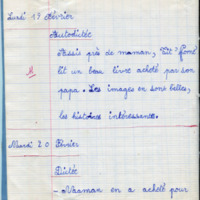 Lundi 19 Février
Autodictée
Assis près de maman,
lit un beau livre acheté par son
papa. Les images en sont belles,
les histoires intéressantes.
Mardi 20 Février
Dictée
- Maman en a acheté pour